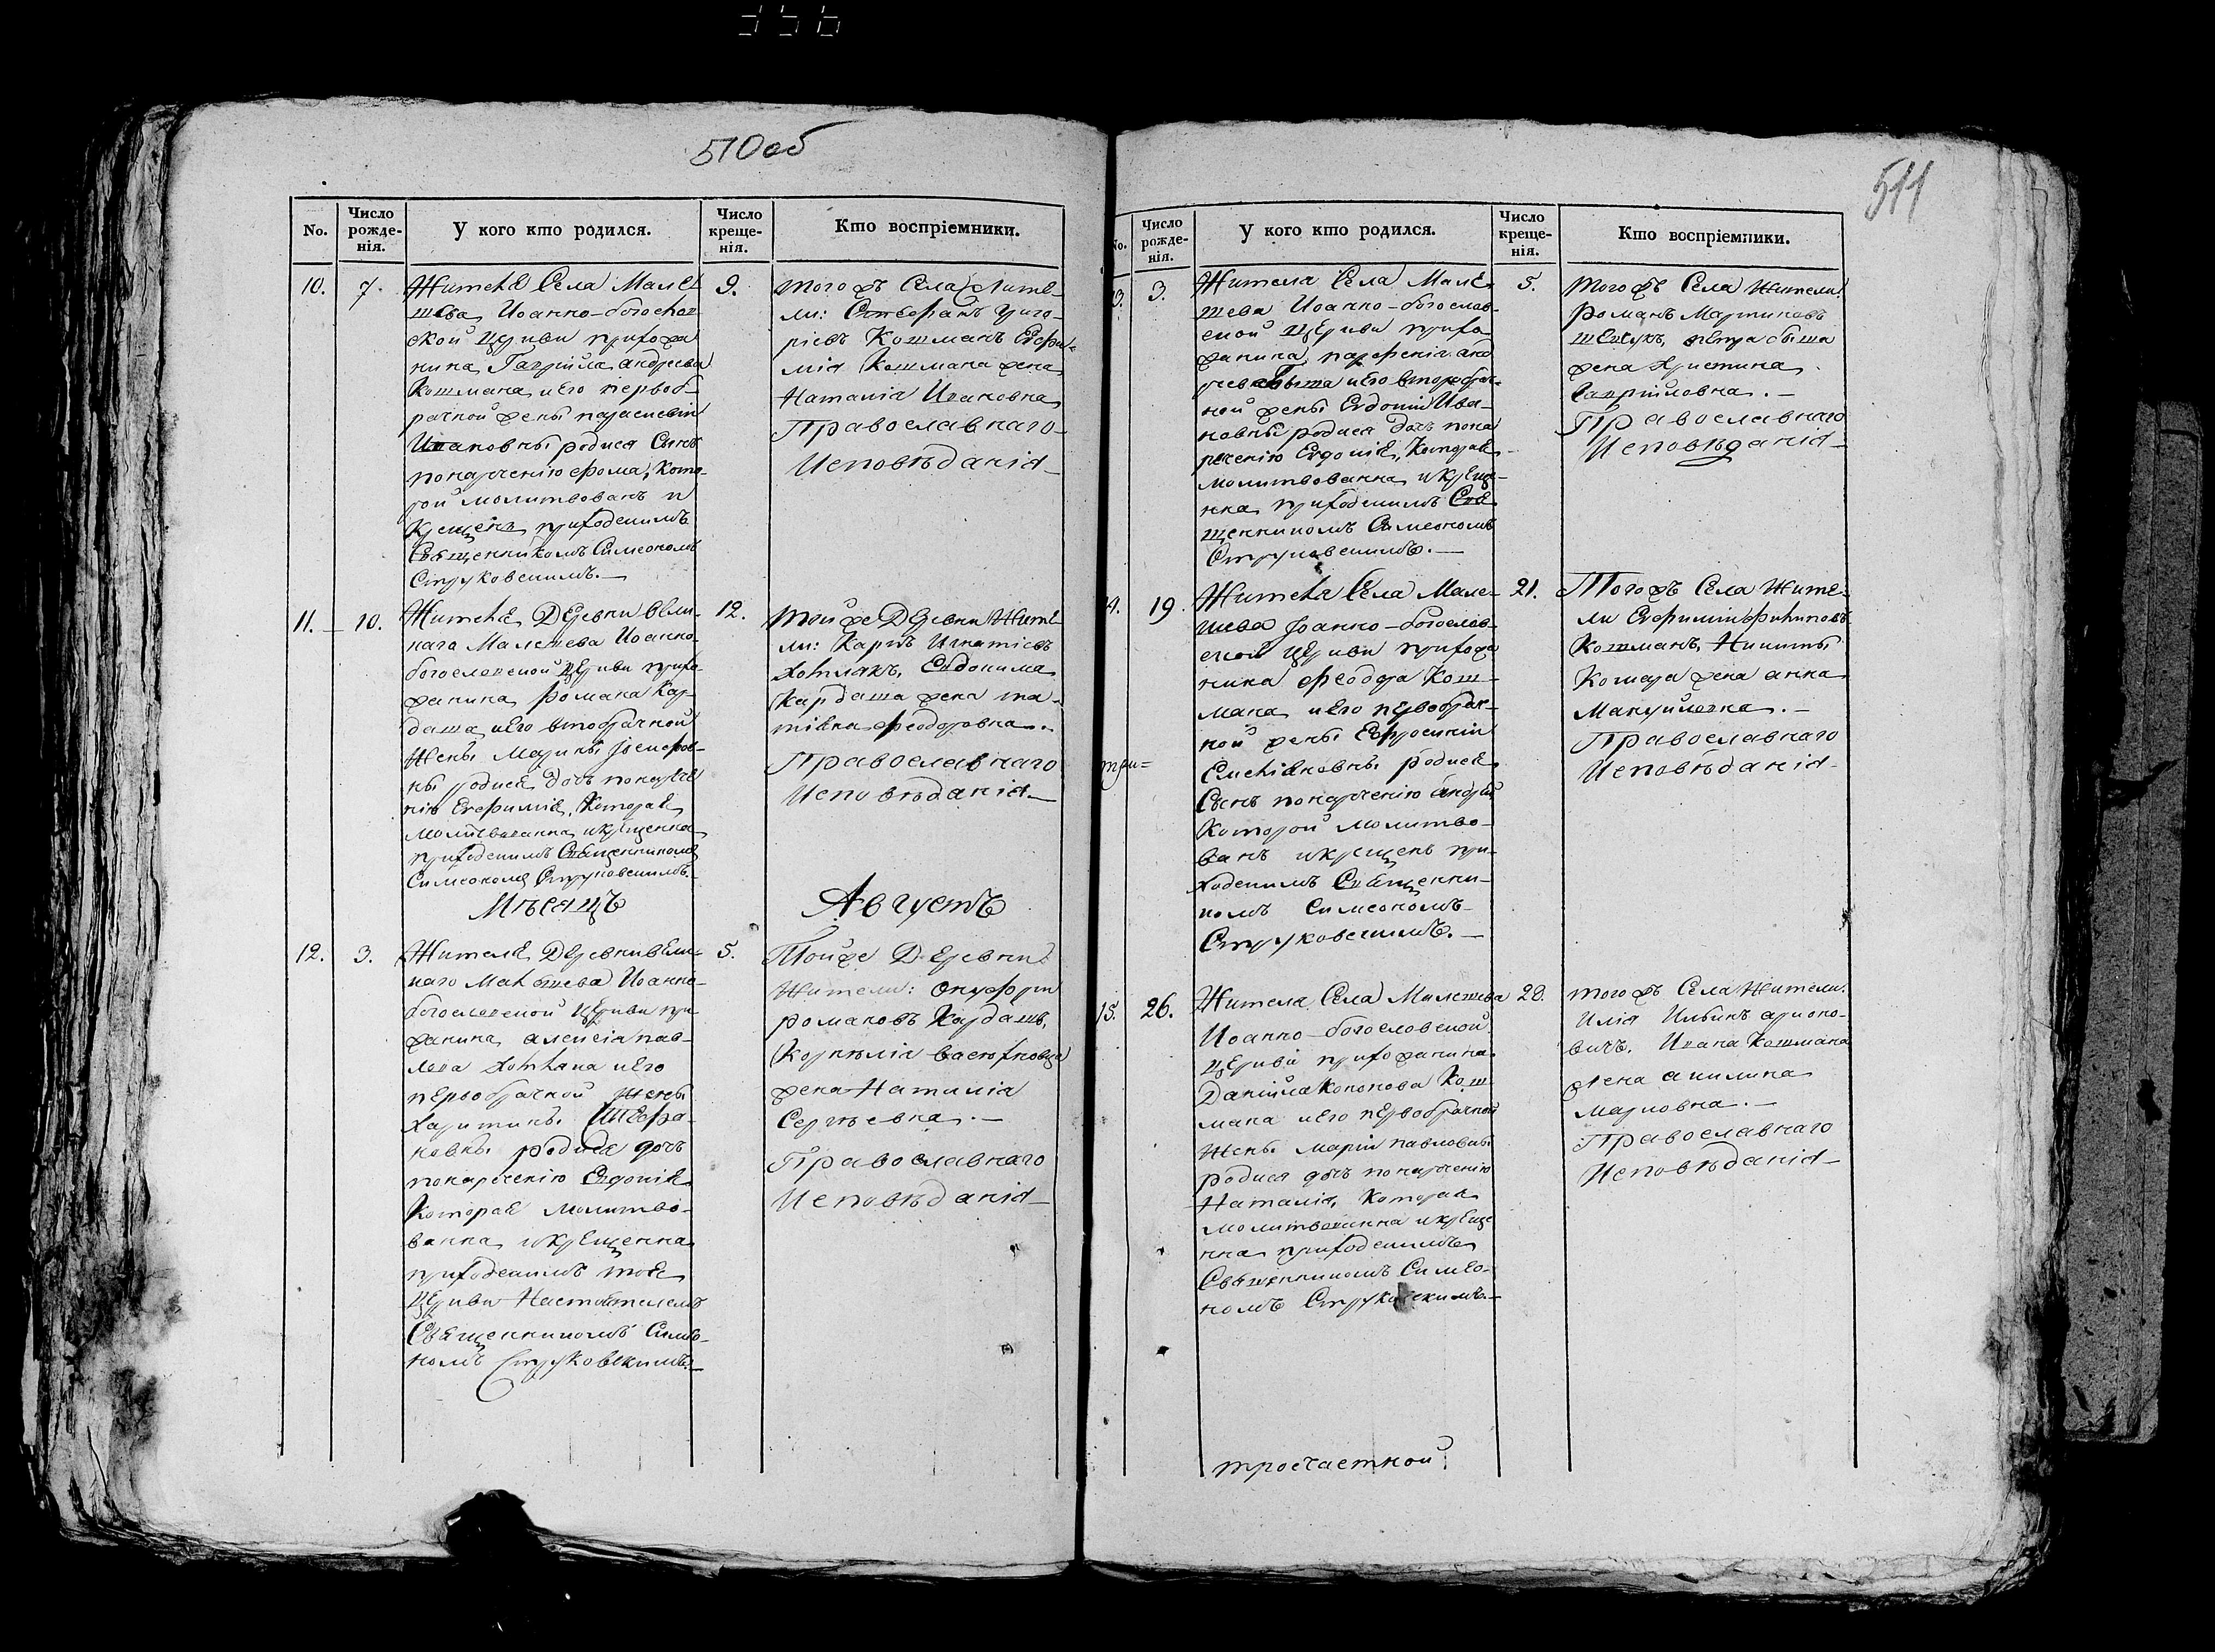 510об
No.
Число рожде-нія.
У кого кто родился.
Число креще-нія.
Кто воспріемники.
10.
7.
Жителя Села Мале
шева Иоанно-богослов
ской церкви прихожа
нина Гавріила Андреева
Кошмана, иего первоб-
рачной жены параскевіи
Ивановны родися Сынъ
понаречению Фома, Кото-
рой молитвованъ и
Крещенъ приходскимъ
Священникомъ Симеономъ
Струковскимъ.—
9.
Того жъ Села Жите-
ли: Стефанъ Григо-
ріевъ Кошманъ Евфи-
мія Кошмана жена
Наталія Ивановна
Православнаго
Исповѣданія
11.
10.
Жителя Деревни Вели-
каго Малешева Иоанно
богословской Церкви прихо-
жанина, Романа Кар-
даша иего второбрачной
Жены Марины
ны родися дочь понарече
нію Евфимія, Которая
Молитвованна икрещенна
приходскимъ Священникомъ
Симеономъ Струковскимъ.
12.
Тойже Деревни Жите
ли: Карпъ Игнатіевъ
Евдокима
Кардаша жена та-
тіяна Феодоровна.
Православнаго
Исповѣданія
Мѣсяцъ
Августъ
12.
3.
Жителя Деревни Вели-
каго Малешева Иоанно-
богословской Церкви при
жанина, алексія пав-
лова иего
первобрачной Жены
Харитины Стефа-
новны родися дочь
понареченію Евдокія
Которая Молитво-
ванна икрещенна
приходскимъ тоея
Церкви Настоятелемъ
Священникомъ Симео-
номъ Струковскимъ.—
5.
Тойже Деревни
Жители: Онуфрій
романовъ Кардашъ,
Корнилія
жена Наталія
Сергѣевна.—
Православнаго
Исповѣданія
511
No.
Число рожде-нія.
У кого кто родился.
Число креще-нія.
Кто воспріемпики.
13.
3.
Жителя Села Мале-
шева Иоанно-богослов-
ской Церкви прихо-
жанина, парфенія анд
реева иего второбрач-
ной жены Евдокіи Ива-
новны родися дочь пона
реченію Евдокія, Которая
Молитвованна икреще-
нна приходскимъ Свя
щенникомъ Симеономъ
Струковскимъ.—
5.
Того жъ Села Жители:
Романъ Мартиновъ
петра
жена Христина
Гавріиловна.—
Православнаго
Исповѣданія
14.
19.
Жителя Села Мале-
шева Иоанно-богослов-
ской Церкви прихожа
нина феодора Кош-
мана иего первобрач-
ной жены Евфросиніи
родися
Сынъ понареченію Андрей
Которой Молитво-
ванъ икрещенъ при-
ходскимъ Священни-
комъ Симеономъ
Струковскимъ.—
21.
Того жъ Села Жите-
ли Евфимій Филиповъ
Кошманъ, Никиты
Комара жена анна
Мануйловна.—
Православнаго
Исповѣданія
15.
26.
Жителя Села Малешева
Иоанно-богословской
Церкви прихожанина
Даніила Кононова Кош
мана иего первобрачной
Жены маріи павловны
родися дочь понареченію
Наталія, Которая
молитвованна икреще
нна приходскимъ
Священникомъ Симео-
номъ Струковскимъ.—
28.
Того жъ Села Жители:
Илія Ильинъ
Ивана Кошмана
Жена акилина
Марковна.—
Православнаго
Исповѣданія
троечастной